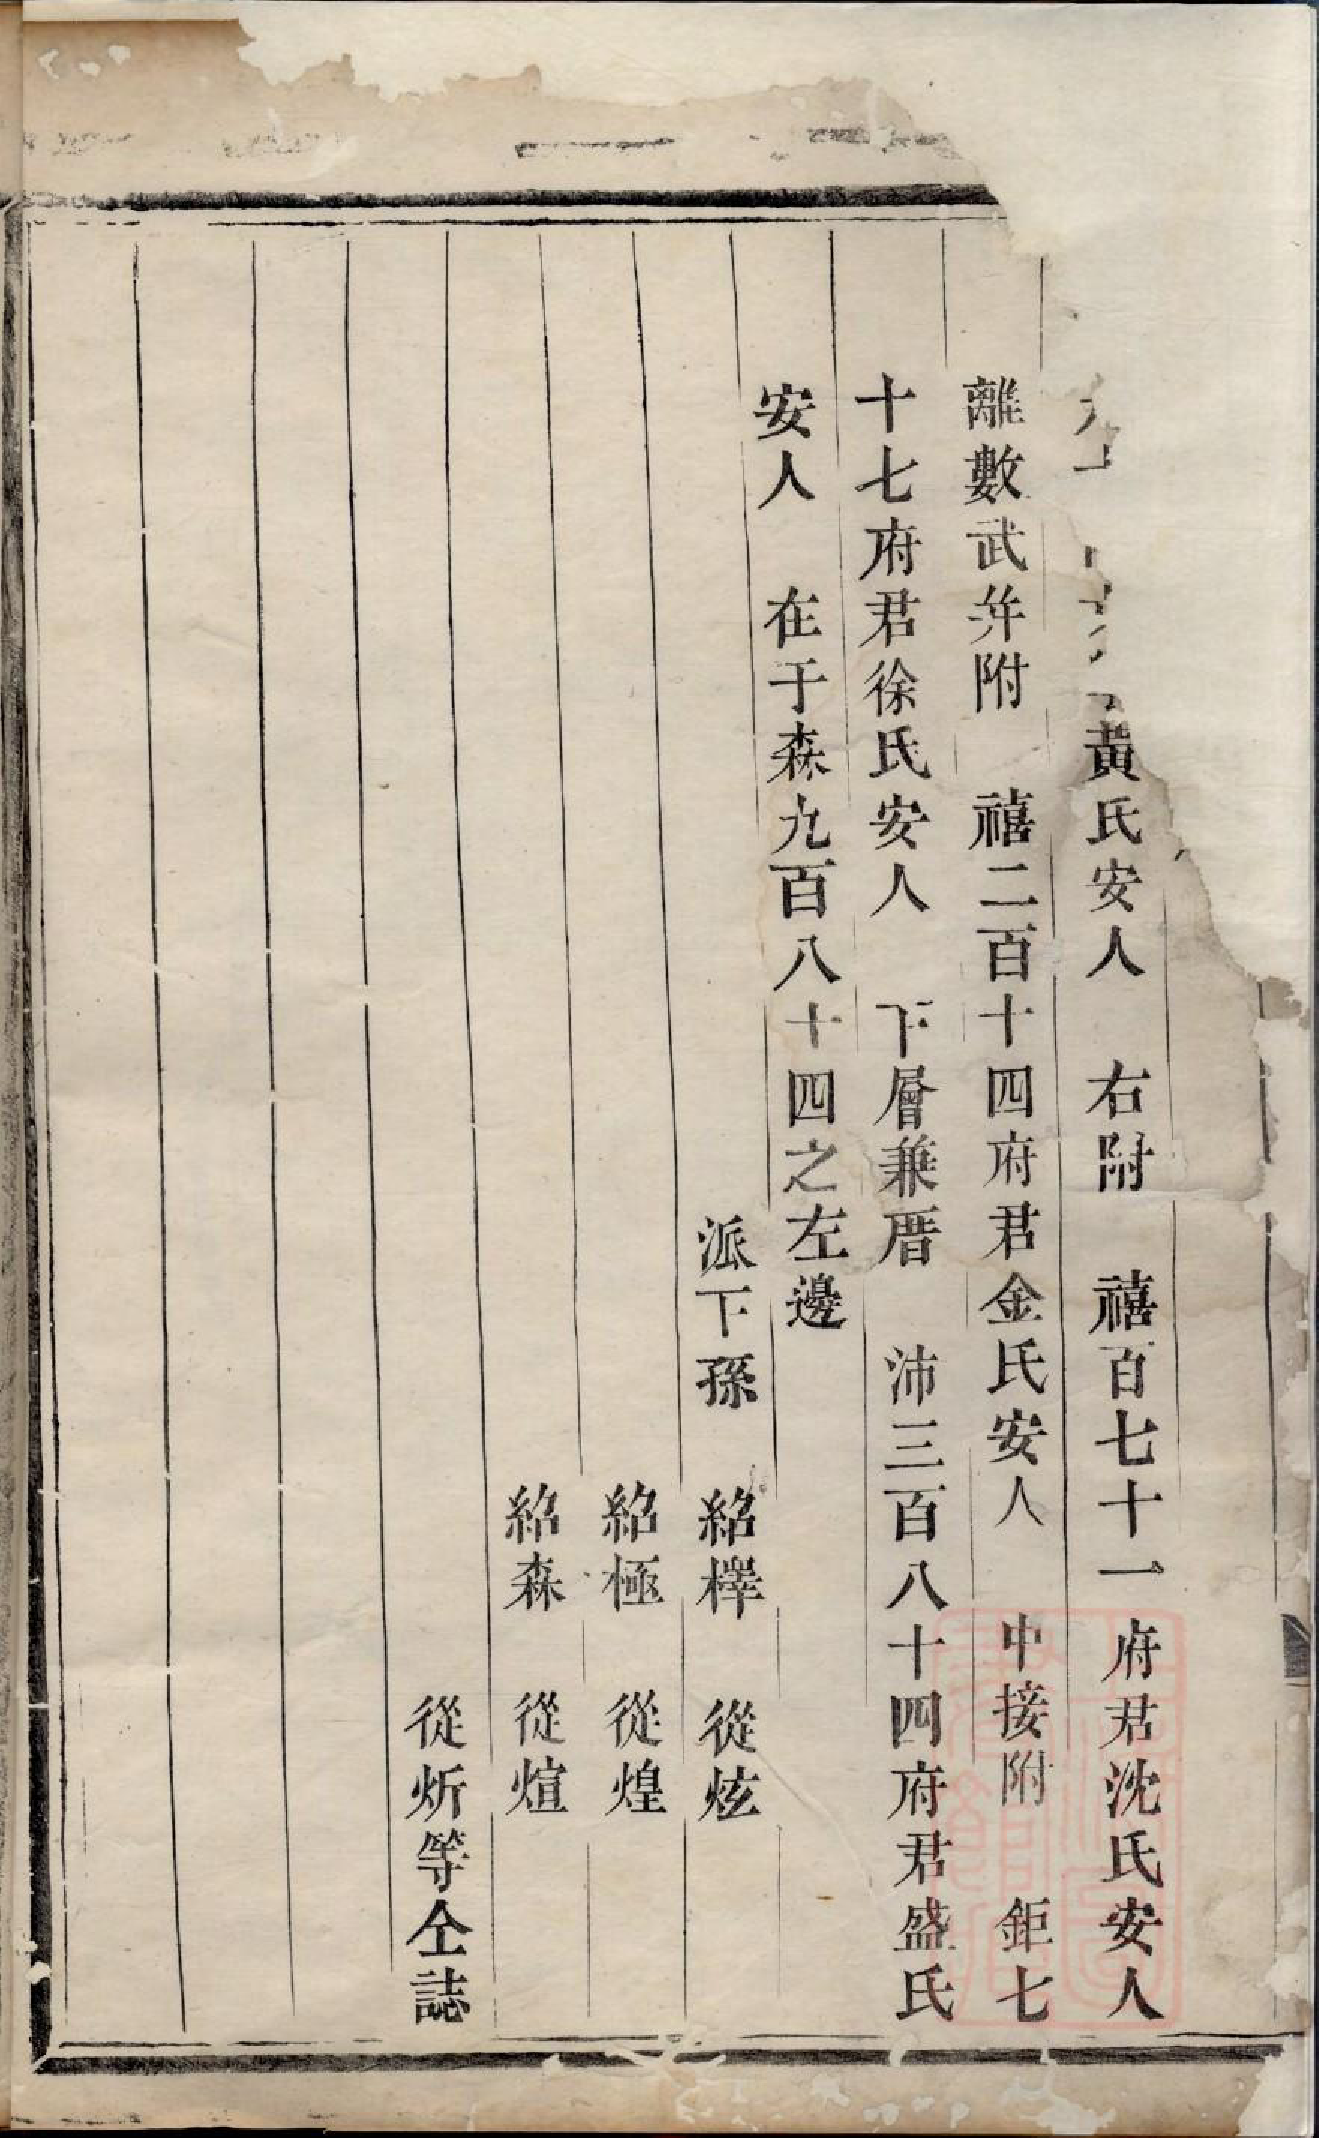 黃氏安人　右附　禧百七十一府君沈氏安人
離數武并附　禧二百十四府君金氏安人　中接附　鉅七
十七府君徐氏安人　下層兼厝　沛三百八十四府君盛氏
安人　在于森九百八十四之左邊
派下孫　紹檡　從炫
紹極　從煌
紹森　從煊
從炘等仝誌